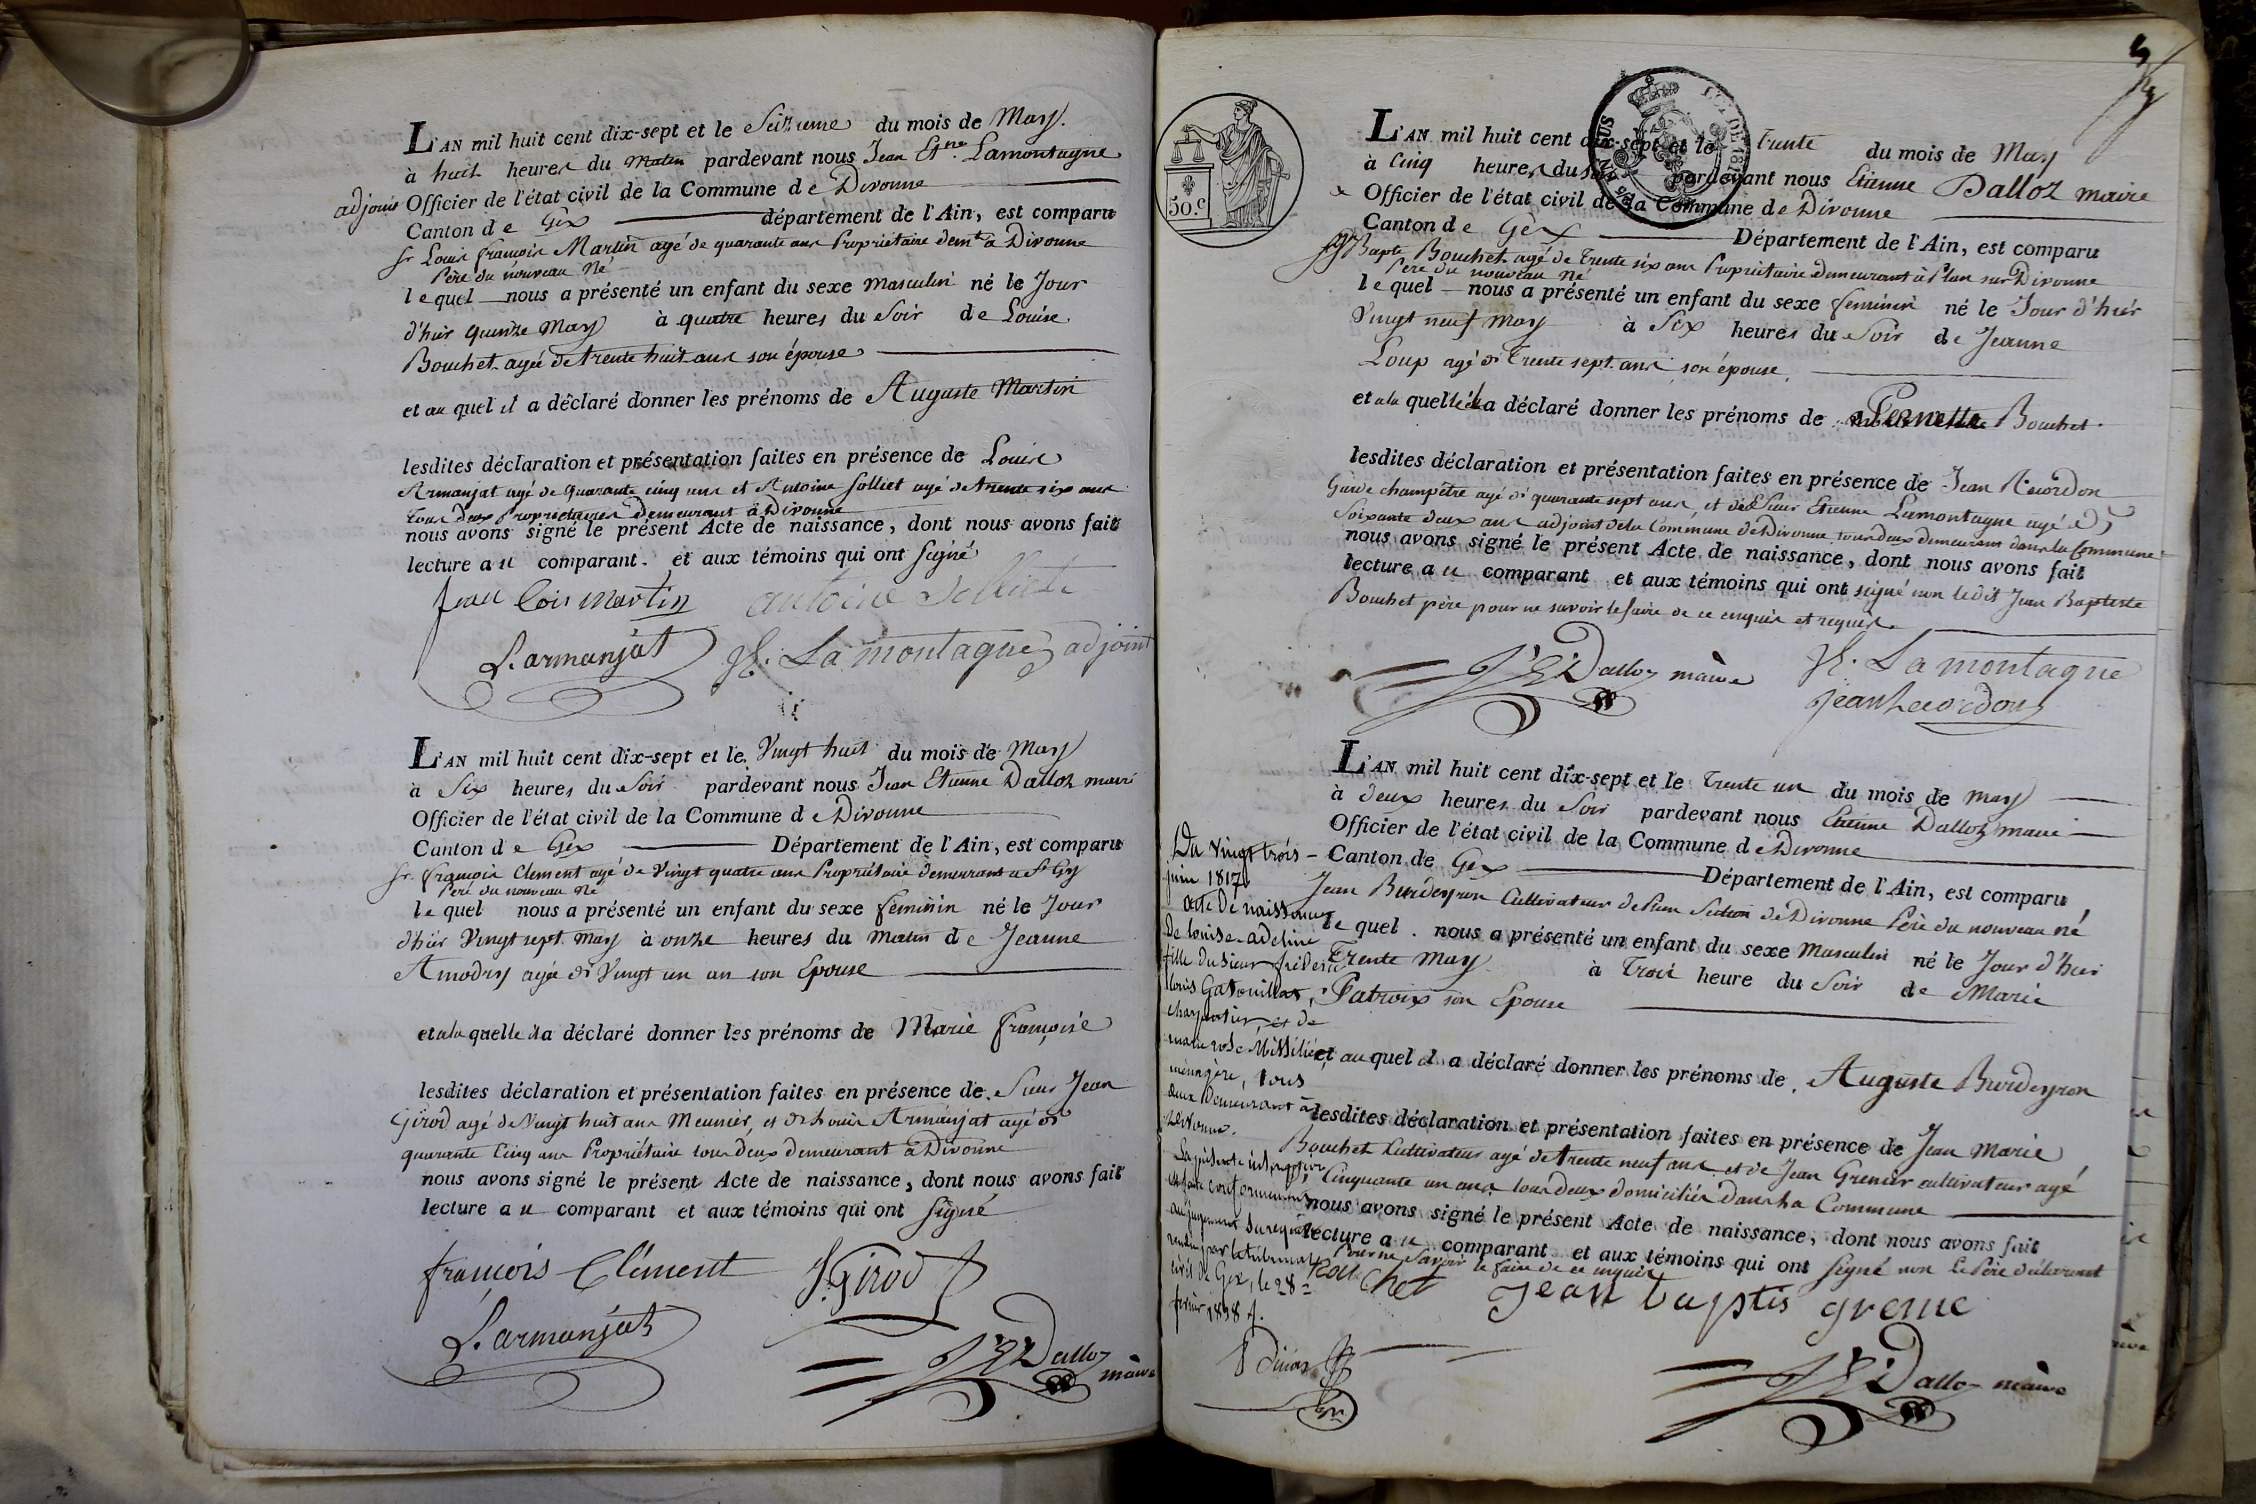 L'AN mil huit cent dix-sept et le Seizieme du mois de May.
à huit heures du matin pardevant nous Jean Et.ne Lamontagne
adjoint Officier de l'état civil de la Commune de Divonne
Canton de Gex département de l'Ain, est comparu
Sr Louis françois Martin agé de quarante ans Propriétaire demt a Divonne
Père du nouveau Né
lequel nous a présenté un enfant du sexe masculin né le Jour
d'hier quinze May à quatre heures du Soir de Louise
Bouchet agée de trente huit ans son épouse
et au quel il a déclaré donner les prénoms de Auguste Martin
lesdites déclaration et présentation faites en présence de Louis
Armanjat agé de quarante cinq ans et Antoine Solliet agé de trente six ans
tous deux Propriétaires demeurant à Divonne
nous avons signé le présent Acte de naissance, dont nous avons fait
lecture au comparant. et aux témoins qui ont signé
Jean Lois Martin antoine
L. armanjat JE. Lamontagne adjoint
L'AN mil huit cent dix-sept et le Vingt huit du mois de May
à Six heures du Soir pardevant nous Jean Etienne Dalloz maire
Officier de l'état civil de la Commune de Divonne
Canton de Gex Département de l'Ain, est comparu
Sr françois Clement agé de Vingt quatre ans Propriétaire demeurant a St Gy
Père du nouveau né
lequel nous a présenté un enfant du sexe feminin né le Jour
d'hier Vingt sept May à onze heures du Matin de Jeanne
Amodry agée de Vingt un an son Epouse
et a la quelle il a déclaré donner les prénoms de Marie françoise
lesdites déclaration et présentation faites en présence de Sieur Jean
Girod agé de Vingt huit ans Meunier, et de Louis Armanjat agé de
quarante Cinq ans Propriétaire tous deux demeurant à Divonne
nous avons signé le présent Acte de naissance, dont nous avons fait
lecture au comparant et aux témoins qui ont Signé
françois Clément J. Girod
L. armanjat
JE Dalloz maire
50.c
L'AN mil huit cent dix-sept et le trente du mois de May
à Cinq heures du pardevant nous Etienne Dalloz maire
Officier de l'état civil de la Commune de Divonne
Canton de Gex Département de l'Ain, est comparu
Bapte Bouchet agé de trente six ans Propriétaire demeurant à Plan sur Divonne
Père du nouveau Né
lequel nous a présenté un enfant du sexe feminin né le Jour d'hier
Vingt neuf May à Six heures du Soir de Jeanne
Loup agé de Trente sept ans son épouse
et a la quelle a déclaré donner les prénoms de Pernette Bouchet.
lesdites déclaration et présentation faites en présence de Jean Recordon
Garde champêtre agé de quarante sept ans, et de Sieur Etienne Lamontagne agé de
Soixante deux ans adjoint de la Commune de Divonne, tous deux demeurant dans la Commune
nous avons signé le présent Acte de naissance, dont nous avons fait
lecture au comparant et aux témoins qui ont signé non ledit Jean Baptiste
Bouchet père pour ne savoir le faire de ce enquis et requis.
JE Dalloz maire JE. Lamontagne
Jean Recordon
L'AN mil huit cent dix-sept et le Trente un du mois de may
à deux heures du Soir pardevant nous Etienne Dalloz maire
Officier de l'état civil de la Commune de Divonne
Canton de Gex Département de l'Ain, est comparu
Jean Burdeyron Cultivateur de Section de Divonne Père du nouveau né
lequel nous a présenté un enfant du sexe Masculin né le Jour d'hier
Trente May à Trois heure du Soir de Marie
Patroix son Epouse
et au quel il a déclaré donner les prénoms de Auguste Burdeyron
lesdites déclaration et présentation faites en présence de Jean Marie
Bouchet Cultivateur agé de trente neuf ans et de Jean Grenier cultivateur agé
Cinquante un ans tous deux domiciliés dans la Commune
nous avons signé le présent Acte de naissance, dont nous avons fait
lecture au comparant et aux témoins qui ont signé non le Père déclarant
Pour ne Savoir le faire de ce enquis
Jean baptis grenie
JE Dalloz maire
Du vingt trois
juin 1817
acte de naissance
de louise-adeline
fille du sieur frédéric
louis Gatouillat,
charpentier, et de
marie rose
ménagère, tous
deux Demeurant à
Divonne.
La présente inscription
est faite conformément
au jugement sur requête
rendu par le tribunal
civil de Gex, le 28
février 1838